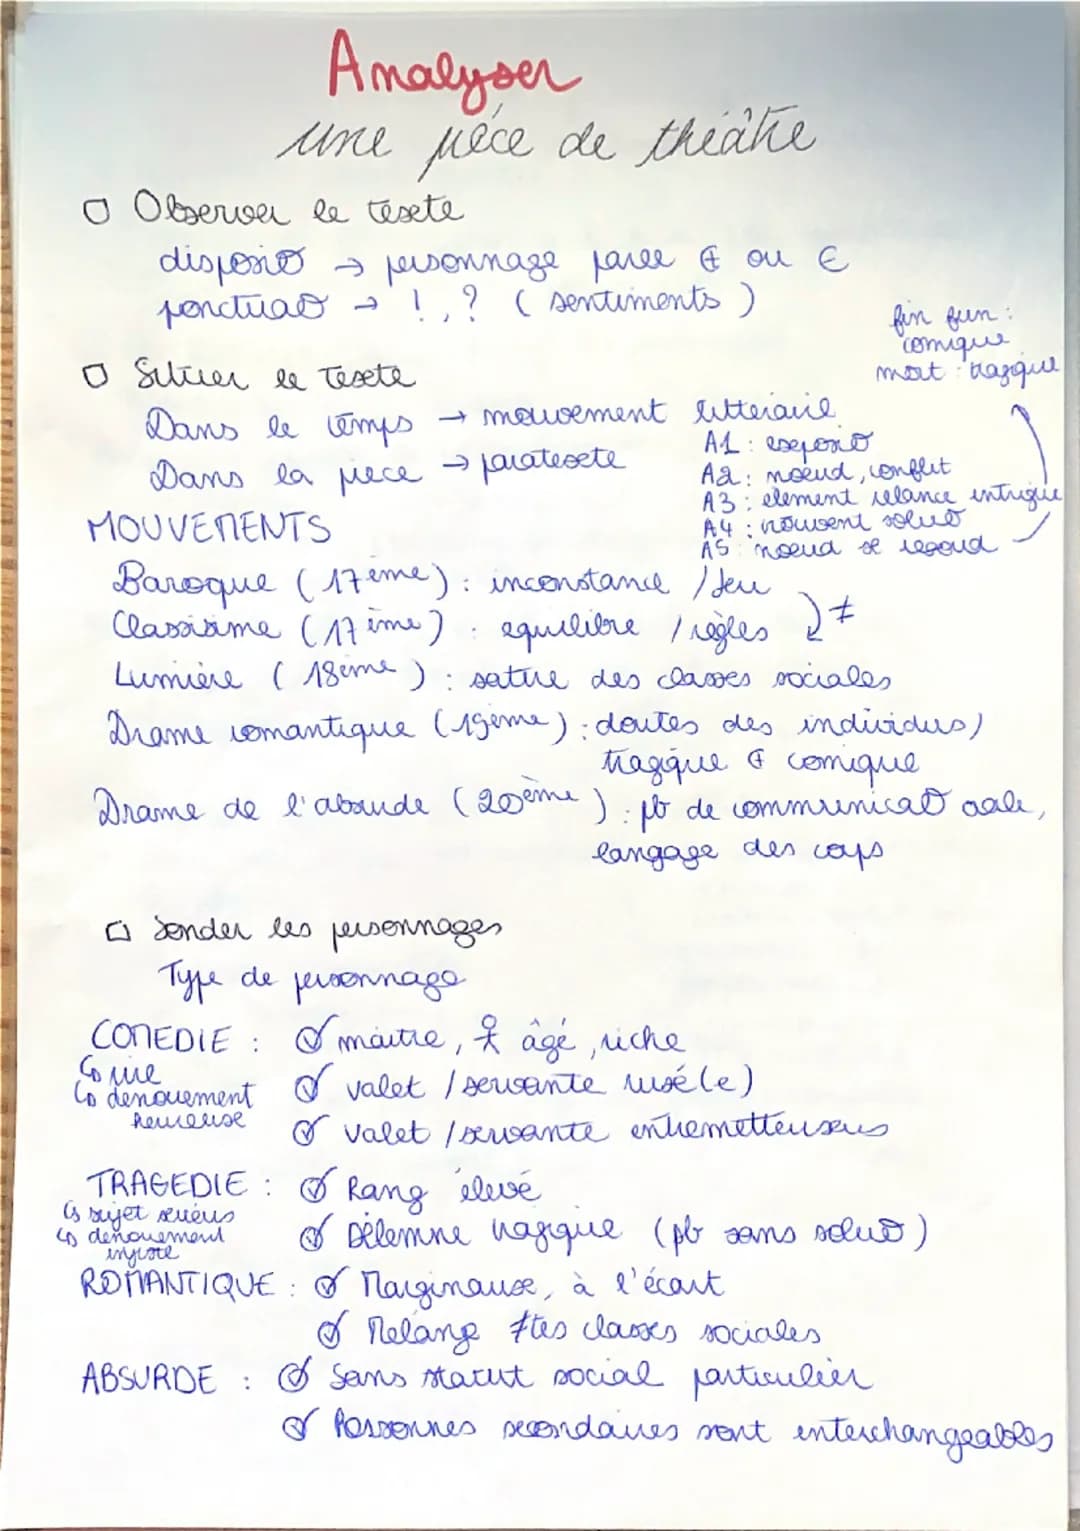 Analyser
une pièce de théâtre
□ Observer le texte
disposi⁰ → personnage parle ⊕ ou ⊖
ponctua⁰ → !, ? (sentiments)
fin fun :
comique
mort : tragique
□ Situer le texte
Dans le temps → mouvement littéraire
Dans la pièce → paratexte
A1 : exposi⁰
A2 : noeud, conflit
A3 : element relance intrigue
A4 : rouvent solu⁰
A5 : noeud se resoud
MOUVEMENTS
Baroque (17ème) : inconstance / Jeu
Classisime (17ème) : equilibre / règles ≠
Lumière (18ème) : satire des classes sociales
Drame romantique (19ème) : doutes des individus /
tragique ⊕ comique
Drame de l'absurde (20ème) : pb de communica⁰ orale,
langage des corps
□ Sonder les personnages
Type de personnage
COMEDIE : maître, âgé, riche
↳ rire
↳ denouement
heureuse
valet / servante rusé(e)
valet / servante entremetteuseurs
TRAGEDIE : Rang élevé
↳ sujet serieux
↳ denouement
injuste
Dilemne tragique (pb sans solu⁰)
ROMANTIQUE : Marginaux, à l'écart
Melange ≠tes classes sociales
ABSURDE : Sans statut social particulier
Personnes secondaires sont interchangeables